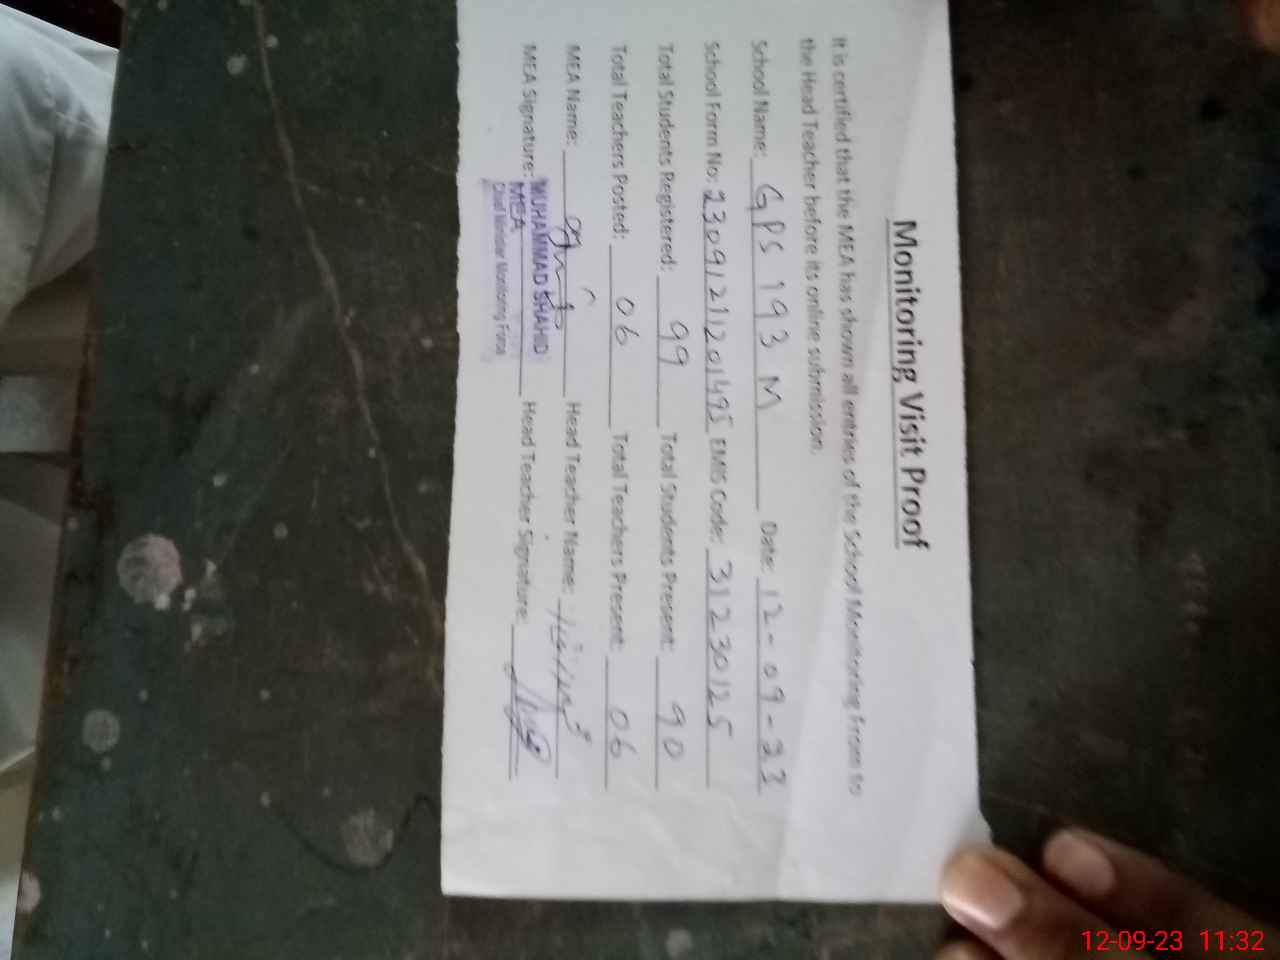 Monitoring Visit Proof
It is certified that the MEA has shown all entries of the School Monitoring From to
the Head Teacher before its online submission.
School Name: GPS 193 M Date: 12-09-23
School Form No: 2309121201495 EMIS Code: 31230125
Total Students Registered: 99 Total Students Present: 90
Total Teachers Posted: 06 Total Teachers Present: 06
MEA Name: Head Teacher Name:
MEA Signature: Head Teacher Signature:
MUHAMMAD SHAHID
MEA
Chief Minister Monitoring Force
12-09-23 11:32